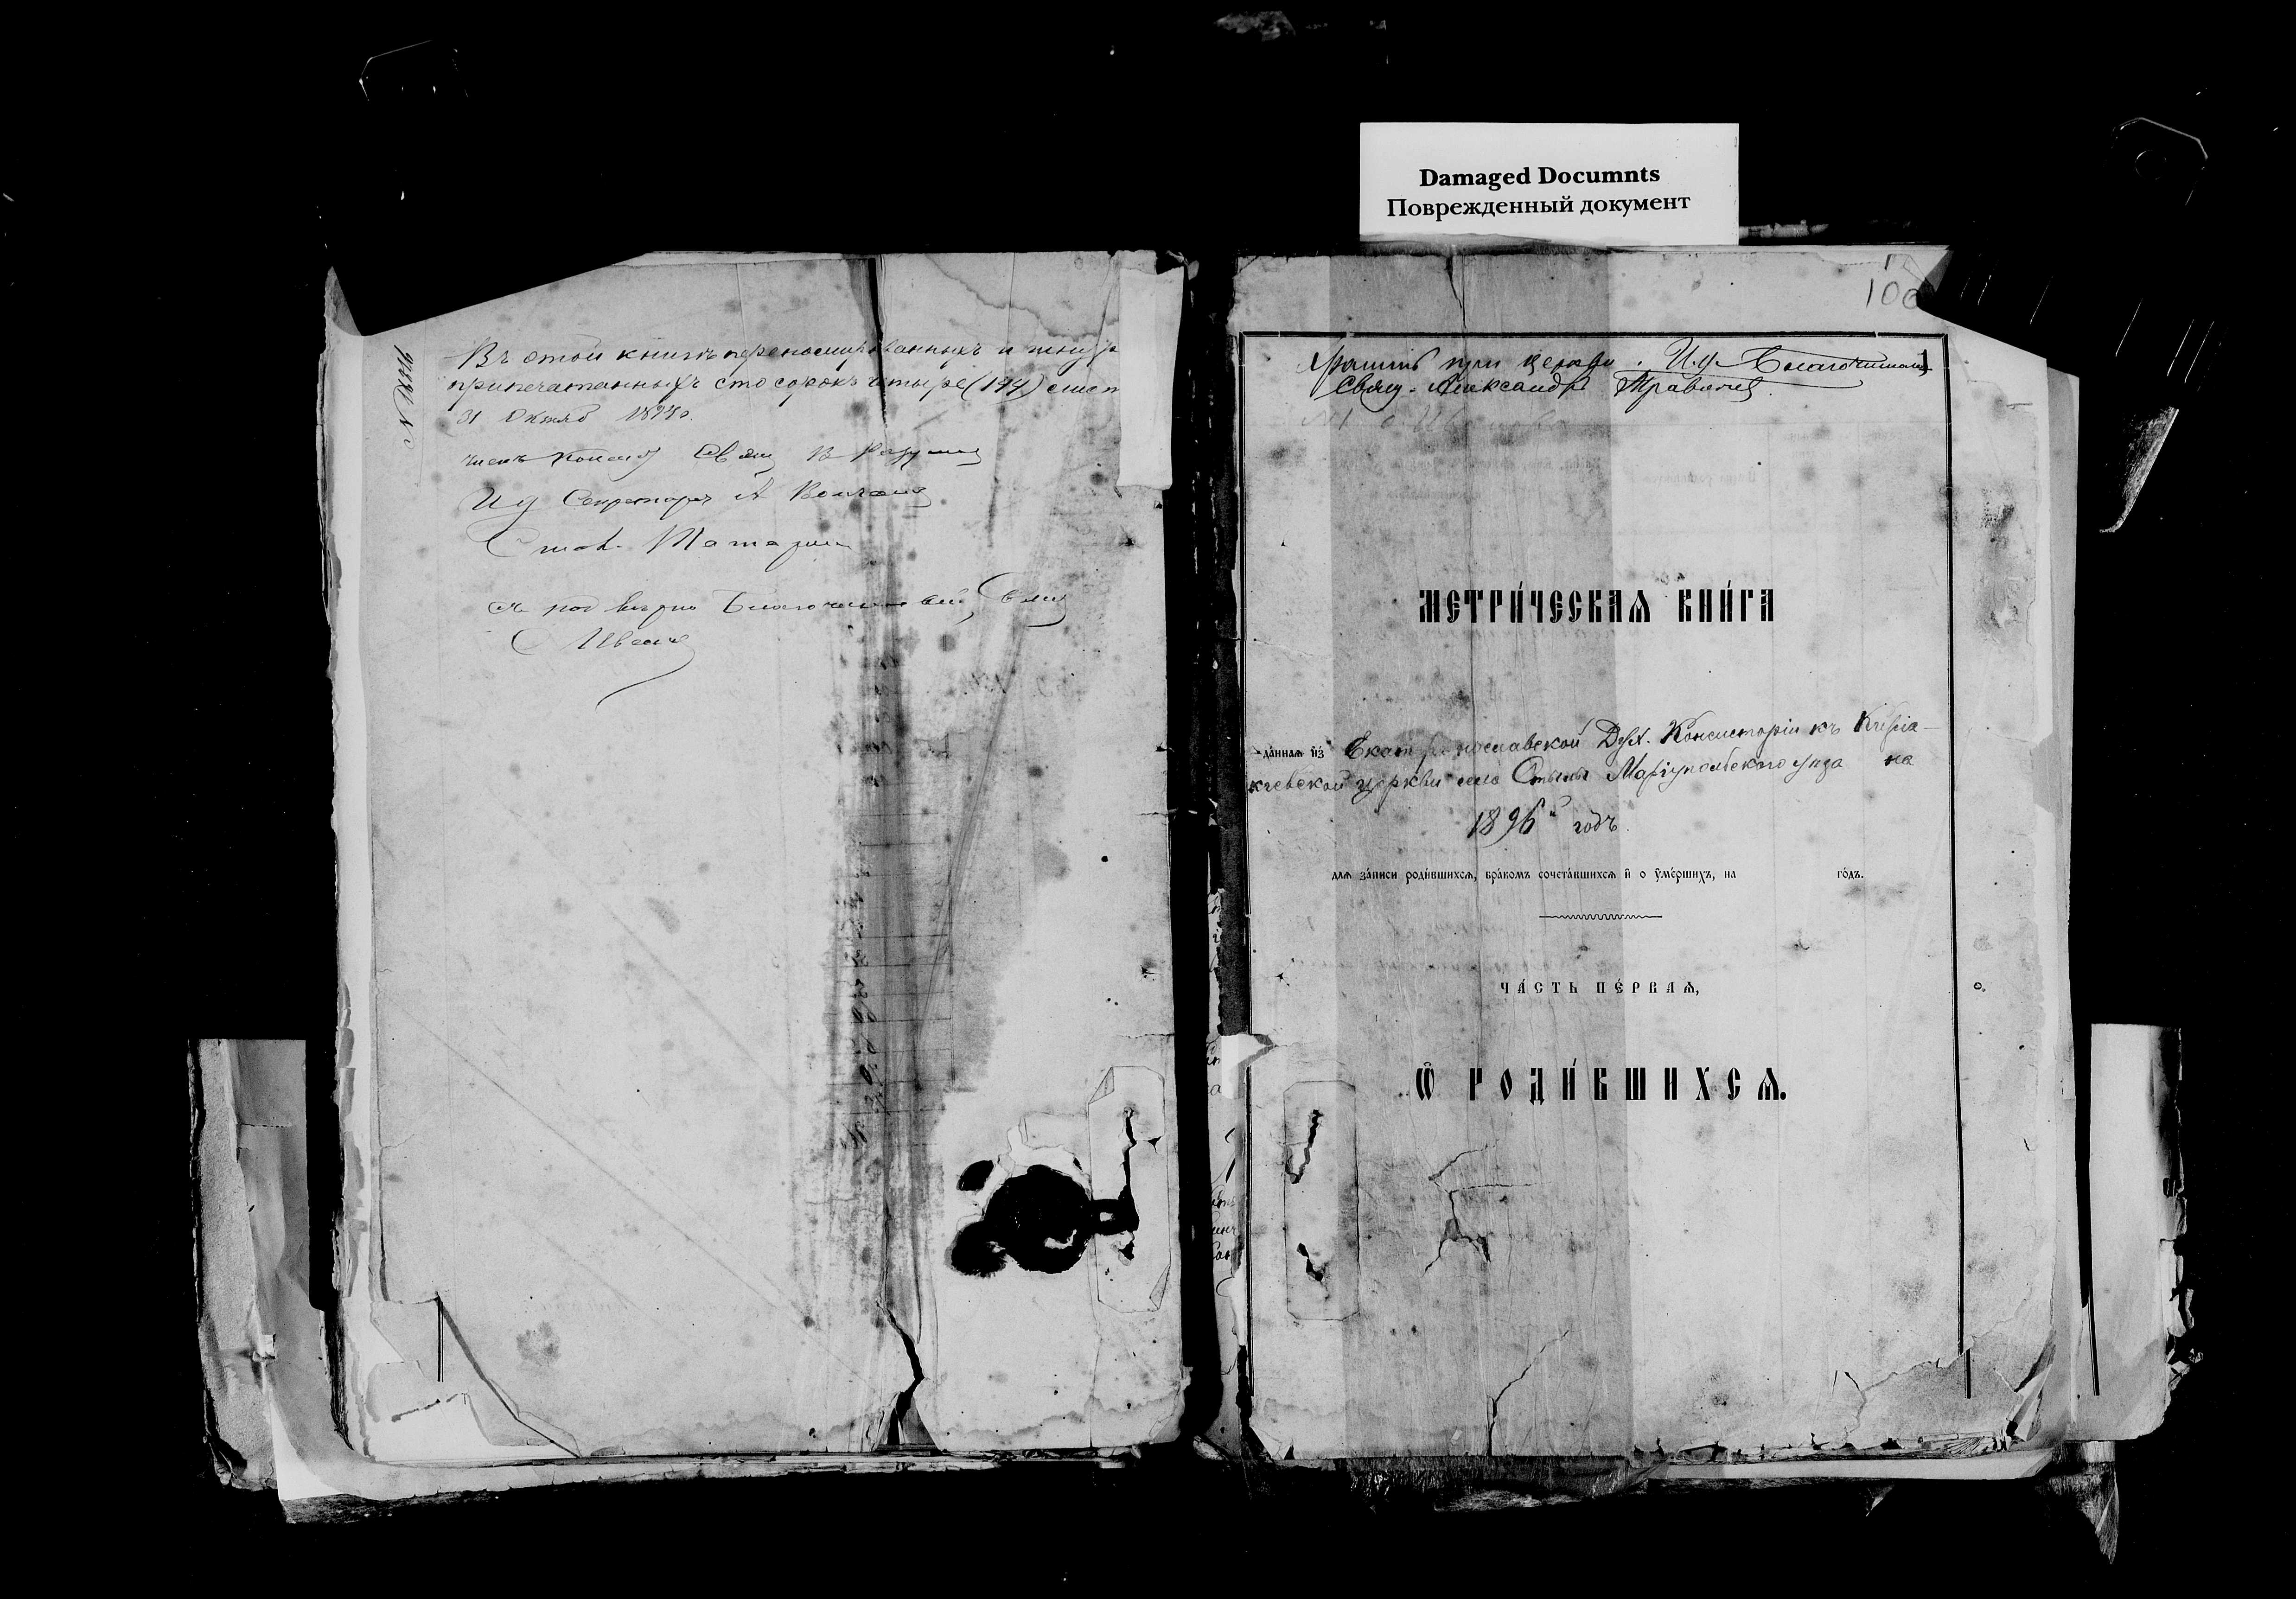 Damaged Documnts
Поврежденный документ
Въ этой книгѣ перенумерованныхъ и шнур
припечатанныхъ сто сорокъ четыре (144) лист
31 Октяб 189
Членъ Консис Свящ В
И д Секретаря А
Стол.
Благочинный, Свящ
106
1
Хранить при церкви. И. д. Благочиннаго
Свящ. Александръ
МЕТРИ́ЧЕСКАѦ КНИ́ГА
да́ннаѧ и҆з̾ Екатеринославской Дух. Консисторіи къ Киріа-
кіевской церкви села Стылы Маріупольскаго уѣзда на
1896й годъ.
длѧ за́писи роди́вшихсѧ, бра́комъ сочета́вшихсѧ и҆ о ᲂу҆ме́ршихъ, на го́дъ.
ЧА́СТЬ ПЕ́РВАѦ,
Ѽ РОДИ́ВШИХСѦ.